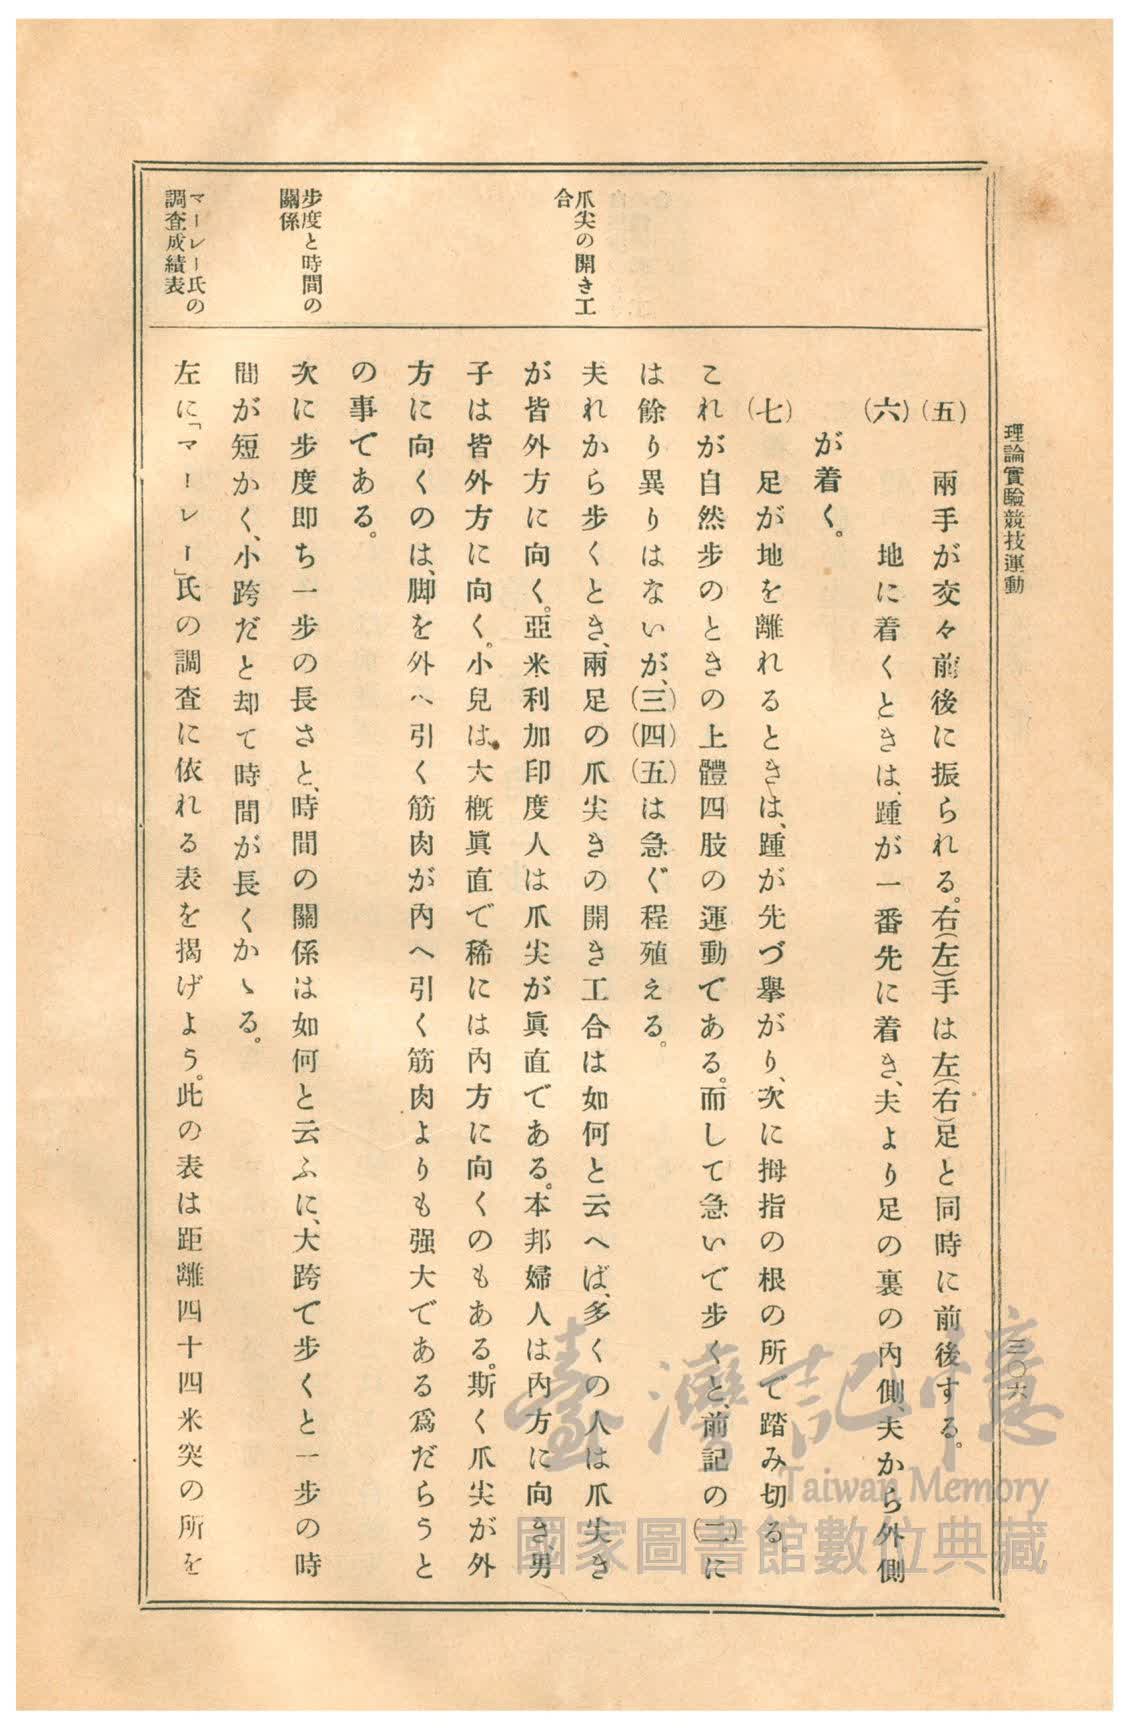 理論實驗競技運動
三〇六
(五) 兩手が交々前後に振られる。右(左)手は左(右)足と同時に前後する。
(六) 地に着くときは、踵が一番先に着き、夫より足の裏の內側、夫から外側
が着く。
(七) 足が地を離れるときは、踵が先づ擧がり、次に拇指の根の所て踏み切る。
これが自然步のときの上體四肢の運動てある。而して急いで步くと、前記の(二)に
は餘り異りはないが、(三)(四)(五)は急ぐ程殖える。
爪尖の開き工
合
夫れから步くとき、兩足の爪尖きの開き工合は如何と云へば、多くの人は爪尖き
が皆外方に向く。亞米利加印度人は爪尖が眞直である。本邦婦人は內方に向き、男
子は皆外方に向く。小兒は大槪眞直で稀には內方に向くのもある。斯く爪尖が外
方に向くのは、脚を外へ引く筋肉が內へ引く筋肉よりも强大である爲だらうと
の事てある。
步度と時間の
關係
次に步度卽ち一步の長さと、時間の關係は如何と云ふに、大跨て步くと一步の時
間が短かく、小跨だと却て時間が長くかゝる。
マーレー氏の
調査成績表
左に「マーレー」氏の調査に依れる表を揭げよう。此の表は距離四十四米突の所を
臺灣記憶
Taiwan Memory
國家圖書館數位典藏